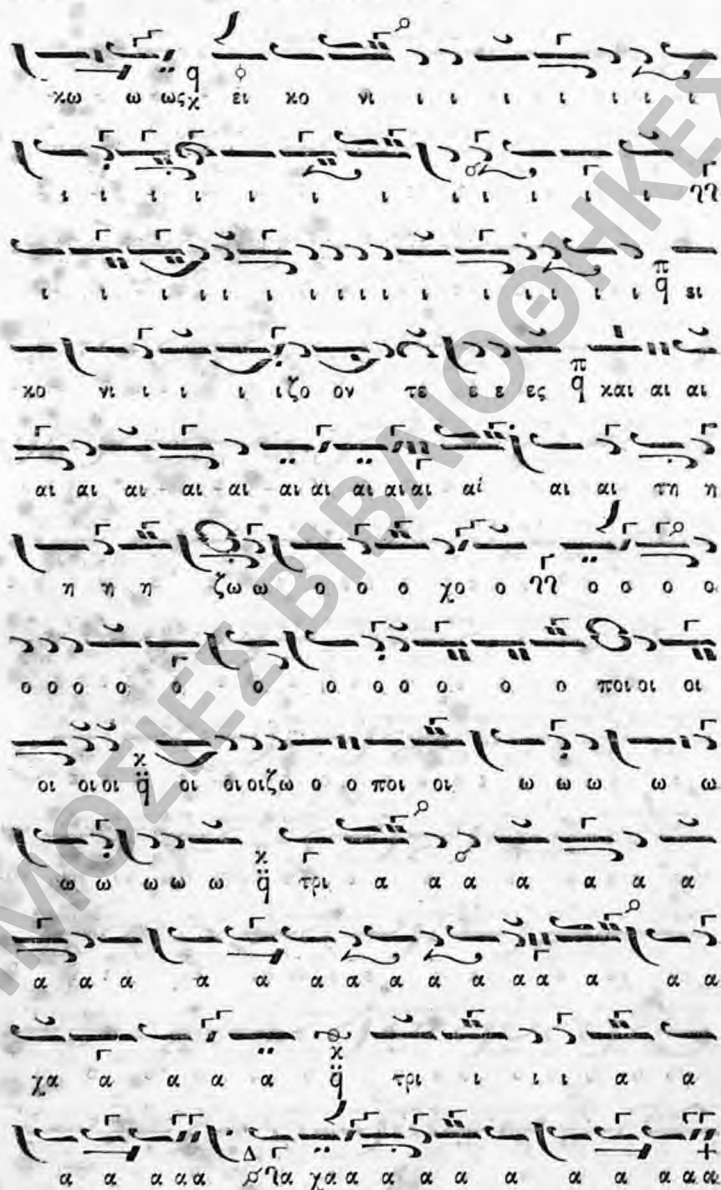 κω ω ως χ ει κο νι ι ι ι ι ι ι ι
ι ι ι ι ι ι ι ι ι ι ι ι
ι ι ι ι ι ι ι ι ι ι ι ι ι ι ι π q ει
κο νι ι ι ι ι ζο ον τε ε ε ες π q και αι αι
αι αι αι αι αι αι αι αι αι αι αι αι αι τη η
η η η ζω ω ο ο ο χο ο ο ο ο ο
ο ο ο ο ο ο ο ο ο ο ο ο ποι οι οι
οι οι οι οι οι οι ζω ο ο ποι οι ω ω ω ω ω
ω ω ω ω ω τρι α α α α α α α
α α α α α α α α α α α α α α α
χα α α α α τρι ι ι ι α α
α α α α α Δ χα α α α α α α α α α α
ΜΟΣΙΕΣ ΒΙΒΛΙΟΘΗΚΕΣ